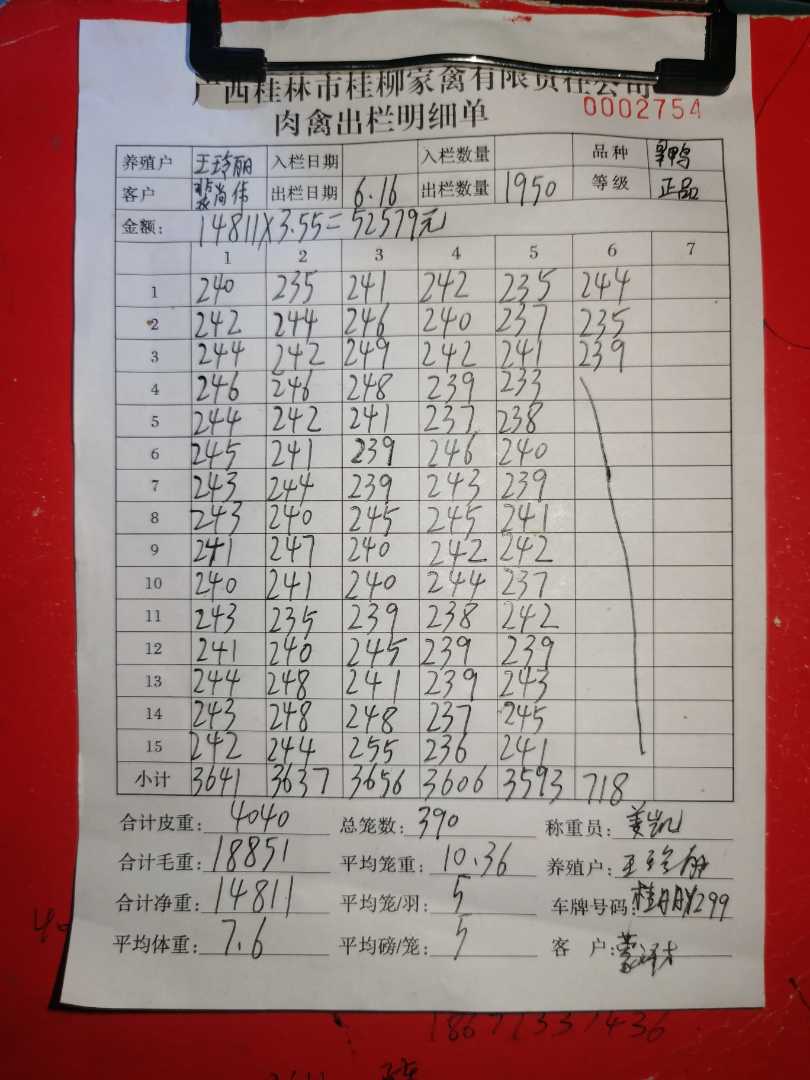 广西桂林市桂柳家禽有限责任公司
肉禽出栏明细单 0002754
养殖户 王玲丽 入栏日期 入栏数量 品种
客户 尚伟 出栏日期 6.16 出栏数量 1950 等级 正品
金额: 14811×3.55=52579元
1 2 3 4 5 6 7
1 240 235 241 242 235 244
2 242 244 246 240 237 235
3 244 242 249 242 241 239
4 246 246 248 239 233
5 244 242 241 237 238
6 245 241 239 246 240
7 243 244 239 243 239
8 243 240 245 245 241
9 241 247 240 242 242
10 240 241 240 244 237
11 243 235 239 238 242
12 241 240 245 239 239
13 244 248 241 239 243
14 243 248 248 237 245
15 242 244 255 236 241
小计 3641 3637 3656 3606 3593 718
合计皮重: 4040 总笼数: 390 称重员: 姜凯
合计毛重: 18851 平均笼重: 10.36 养殖户:
合计净重: 14811 平均笼/羽: 5 车牌号码:
平均体重: 7.6 平均磅/笼: 5 客户: